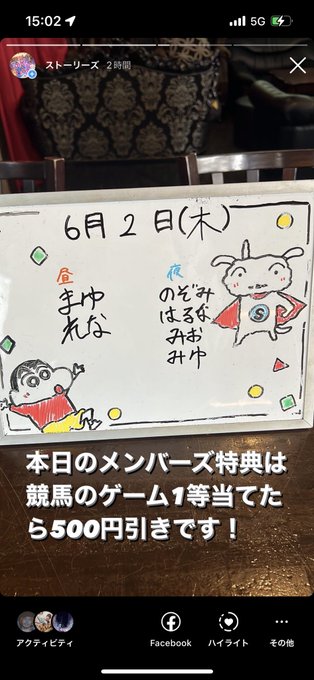 15:02
5G
ストーリーズ 2時間
6月2日(木)
昼
まゆ
れな
夜
のぞみ
はるな
みお
みゆ
S
本日のメンバーズ特典は
競馬のゲーム1等当てた
ら500円引きです！
アクティビティ
Facebook
ハイライト
その他